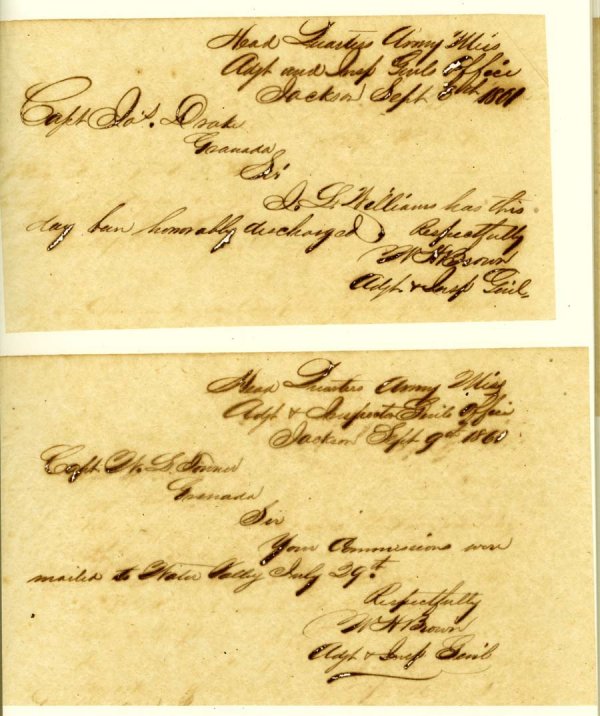 Head Quarters Army Miss
Adjt and Insp Genls Office
Jackson Sept 1861
Capt Jas. Drake
Granada
Sir
J. L. Williams has this
day been honorably discharged.
Respectfully
W H Brown
Adjt & Insp Genl.
Head Quarters Army Miss
Adjt & Inspector Genls Office
Jackson Sept 9th 1861
Capt W. S.
Granada
Sir
Your Commissions were
mailed to Water Valley July 29th.
Respectfully
W H Brown
Adjt & Insp Genl